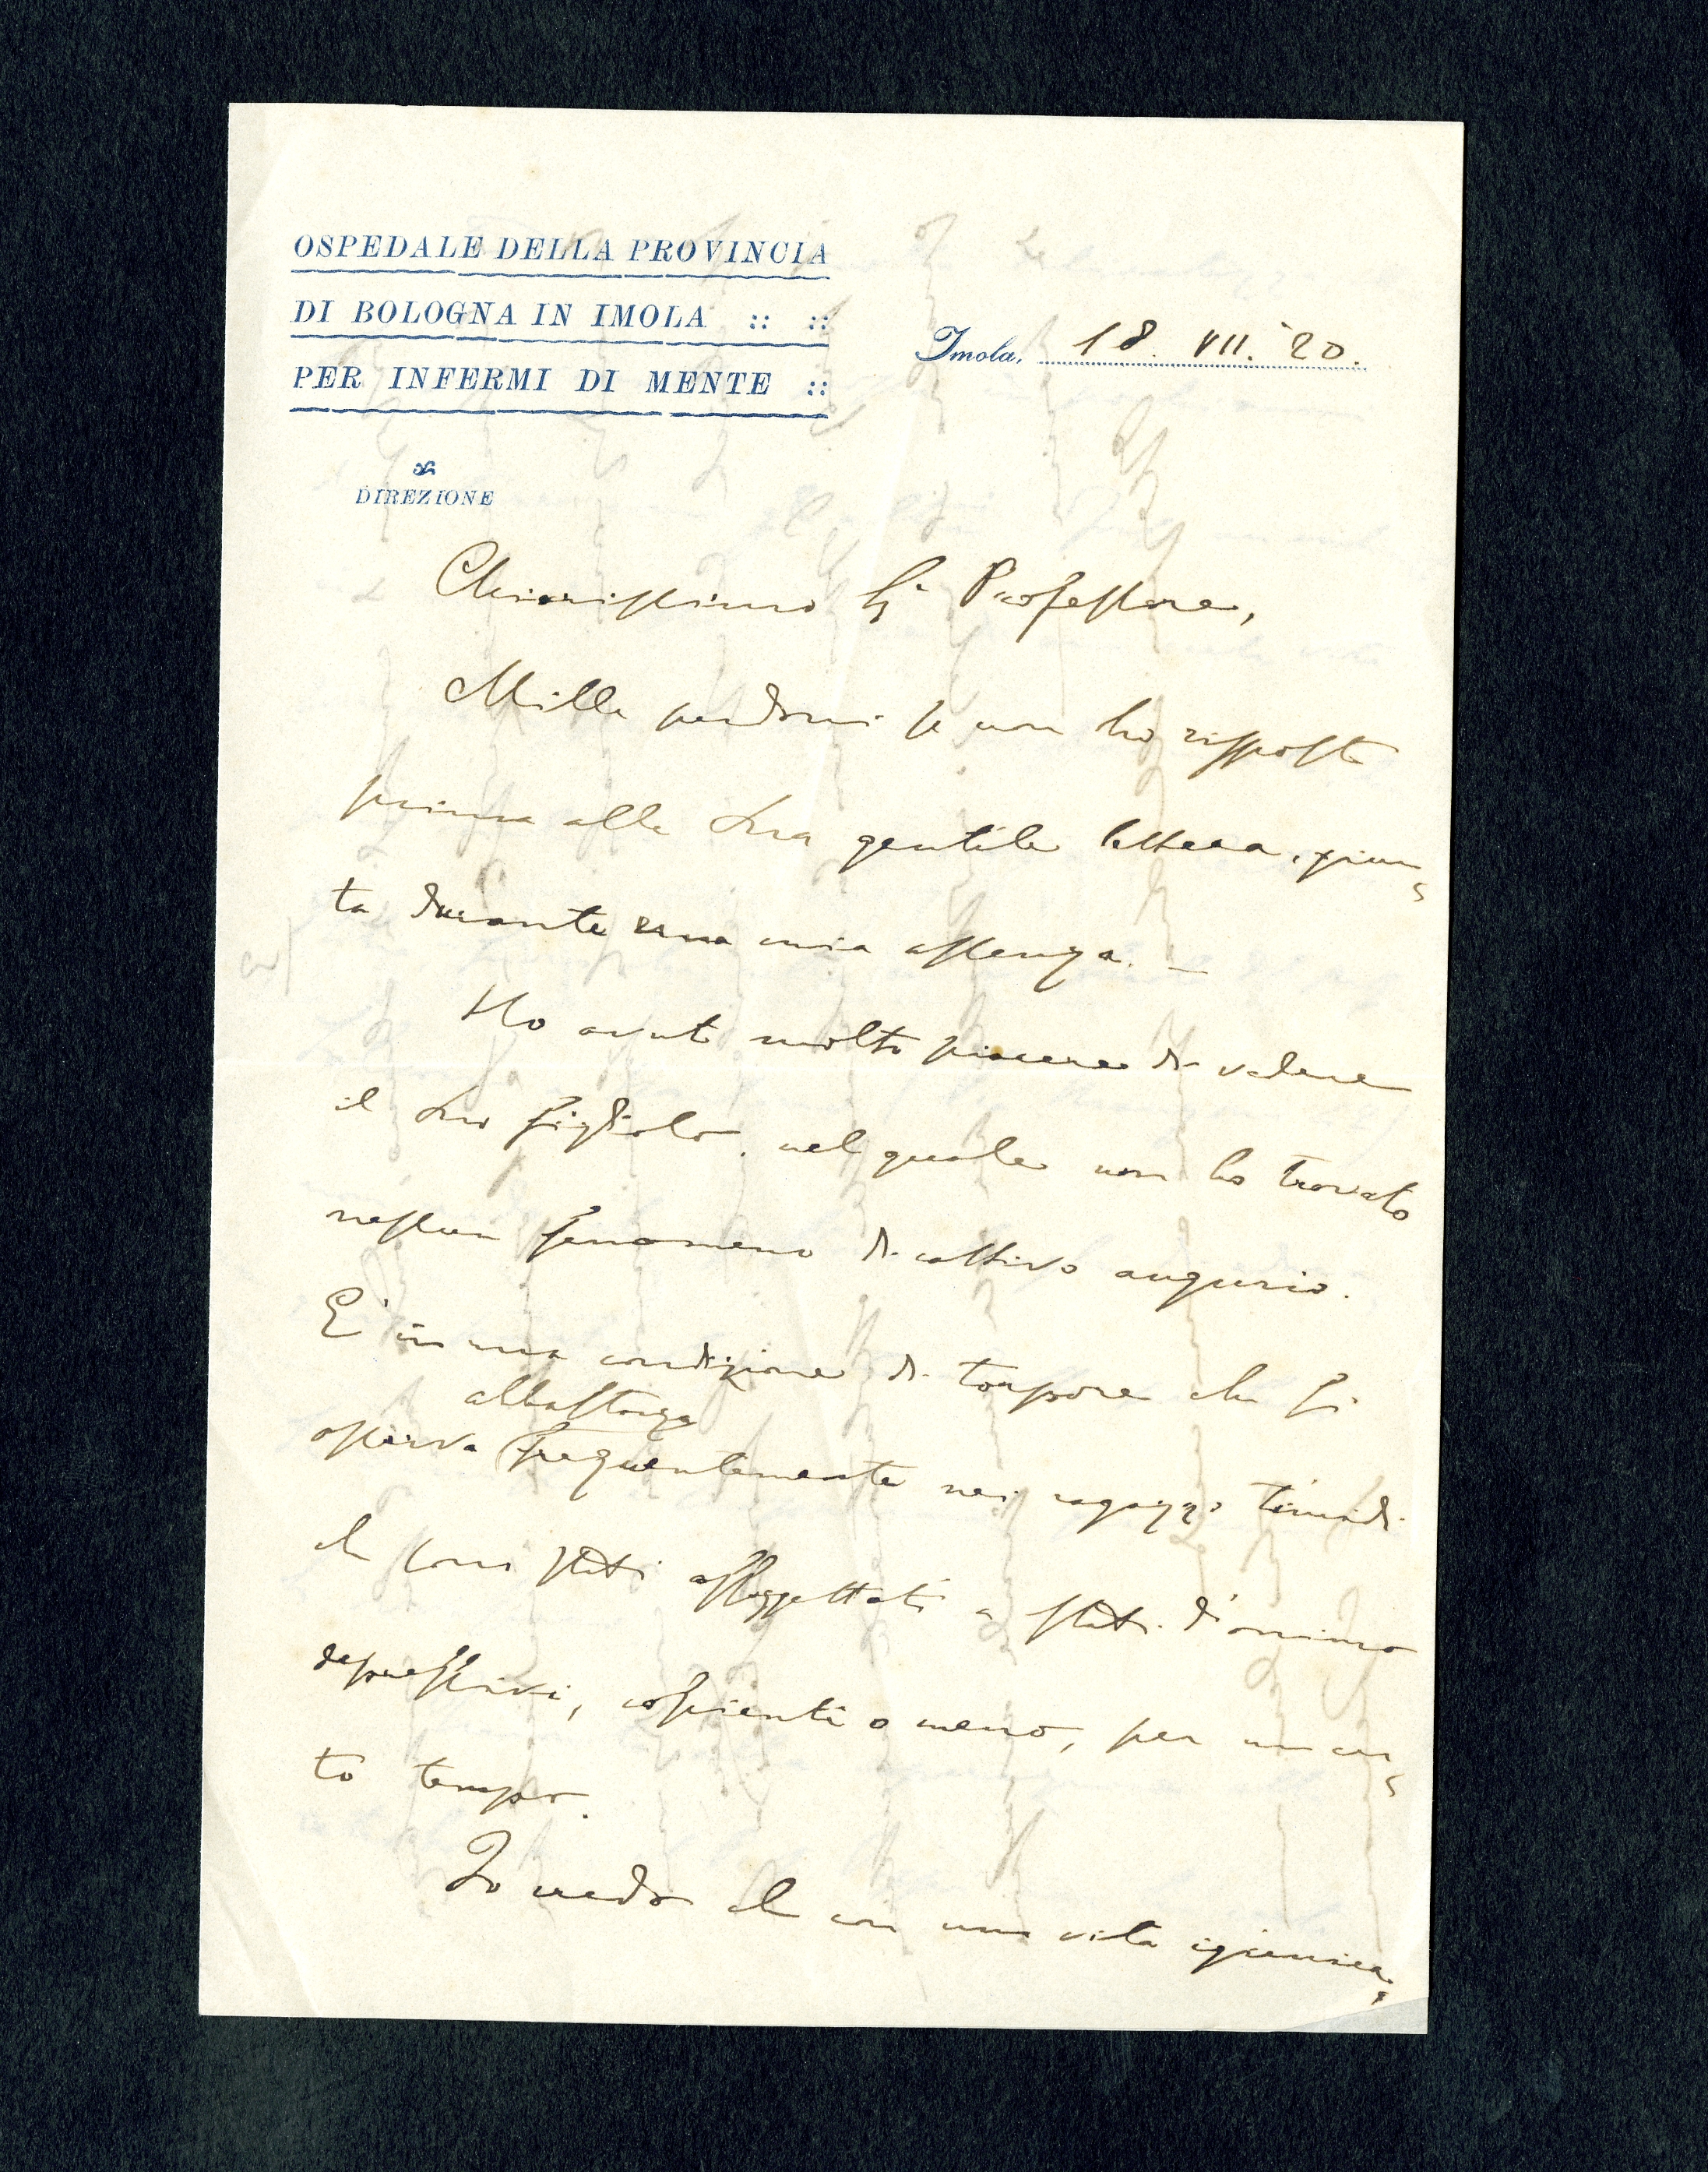 OSPEDALE DELLA PROVINCIA
DI BOLOGNA IN IMOLA :: ::
PER INFERMI DI MENTE ::
DIREZIONE
Imola, 18. VII. '20.
Chiarissimo Sr Professore,
Mille perdoni se non ho risposto
prima alla Sua gentile lettera, giun-
ta durante una mia assenza. –
Ho avuto molto piacere di vedere
il Suo figliolo, nel quale non ho trovato
nessun fenomeno di cattivo augurio.
E' in una condizione di torpore che si
osserva abbastanza frequentemente nei ragazzi timidi
che sono stati assoggettati a stati d'animo
depressivi, coscienti o meno, per un cer-
to tempo.
Io credo che con una vita igienica,